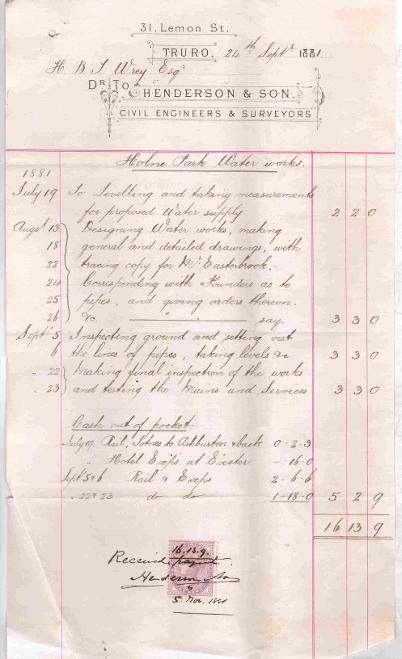 31. Lemon St.
TRURO. 24th Septr. 1881
H. B. T. Wrey Esqr
Dr. To HENDERSON & SON.
CIVIL ENGINEERS & SURVEYORS
Holne Park Water works.
1881
July 19 To Levelling and taking measurements
for proposed Water supply 2 2 0
Augst 13 Designing Water works, making
18 general and detailed drawings, with
22 tracing copy for Mr. Easterbrook.-
24 Corresponding with Founders as to
25 pipes, and giving orders thereon.
26 &c " " say. 3 3 0
Sept 5 Inspecting ground and setting out
6 the lines of pipes, taking levels &c 3 3 0
" 22 Making final inspection of the works
" 23 and testing the Mains and Services 3 3 0
Cash out of pocket
July 19. Rail, Totnes to Ashburton & back 0-2-3
" Hotel Exps at Exeter -16-0
Sept 5&6 Rail & Exps 2-6-6
" 22&23 do do 1-18-0 5 2 9
16 13 9
16.13.9.
Received payment
Henderson & Son
5. Nov. 1881